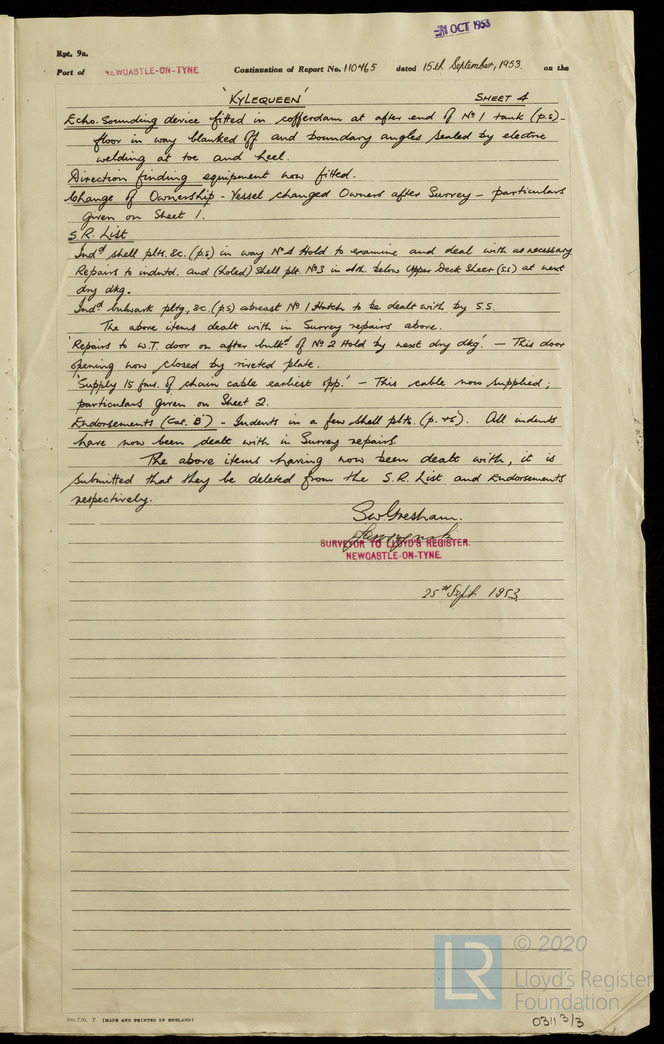 1 OCT 1953
Rpt. 9a.
Port of NEWCASTLE-ON-TYNE. Continuation of Report No. 110465 dated 15th September, 1953. on the
'KYLEQUEEN' SHEET 4
Echo. Sounding device fitted in cofferdam at after end of No 1 tank (p.s) -
floor in way blanked off and boundary angles sealed by electric
welding at toe and heel.
Direction finding equipment now fitted.
Change of Ownership - Vessel changed Owners after Survey - particulars
given on Sheet 1.
S.R. List
Indd shell plts. &c. (p.s) in way No 4 Hold to examine and deal with as necessary
Repairs to indntd. and (holed) Shell plt. No 3 in 4th below Upper Deck Sheer (s.s) at next
dry dkg.
Indd bulwark pltg, &c. (p.s) abreast No 1 Hatch to be dealt with by S.S.
The above items dealt with in Survey repairs above.
'Repairs to W.T. door on after bulkd of No 2 Hold by next dry dkg.' - This door
opening now closed by riveted plate.
'Supply 15 fms. of chain cable earliest opp.' - This cable now supplied;
particulars given on Sheet 2.
Endorsements (Cat. 'B') - Indents in a few shell plts. (p. + s). All indents
have now been dealt with in Survey repairs.
The above items having now been dealt with, it is
submitted that they be deleted from the S.R. List and Endorsements
respectively.
S W Gresham.
SURVEYOR TO LLOYD'S REGISTER.
NEWCASTLE-ON-TYNE.
25th Sept. 1953
T. (MADE AND PRINTED IN ENGLAND)
LR © 2020
Lloyd's Register
Foundation
0311 3/3